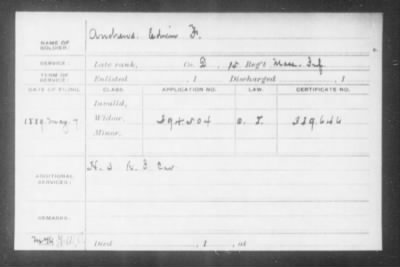 NAME OF SOLDIER: Andrews, Edwin F.
SERVICE: Late rank, Co. D, 15 Reg't Mass. Inf.
TERM OF SERVICE: Enlisted , 1 Discharged , 1
DATE OF FILING. CLASS. APPLICATION NO. LAW. CERTIFICATE NO.
Invalid,
1889 May 7 Widow, 394504 O. L. 339.646
Minor,
ADDITIONAL SERVICES: H.
REMARKS:
Died , 1 , at